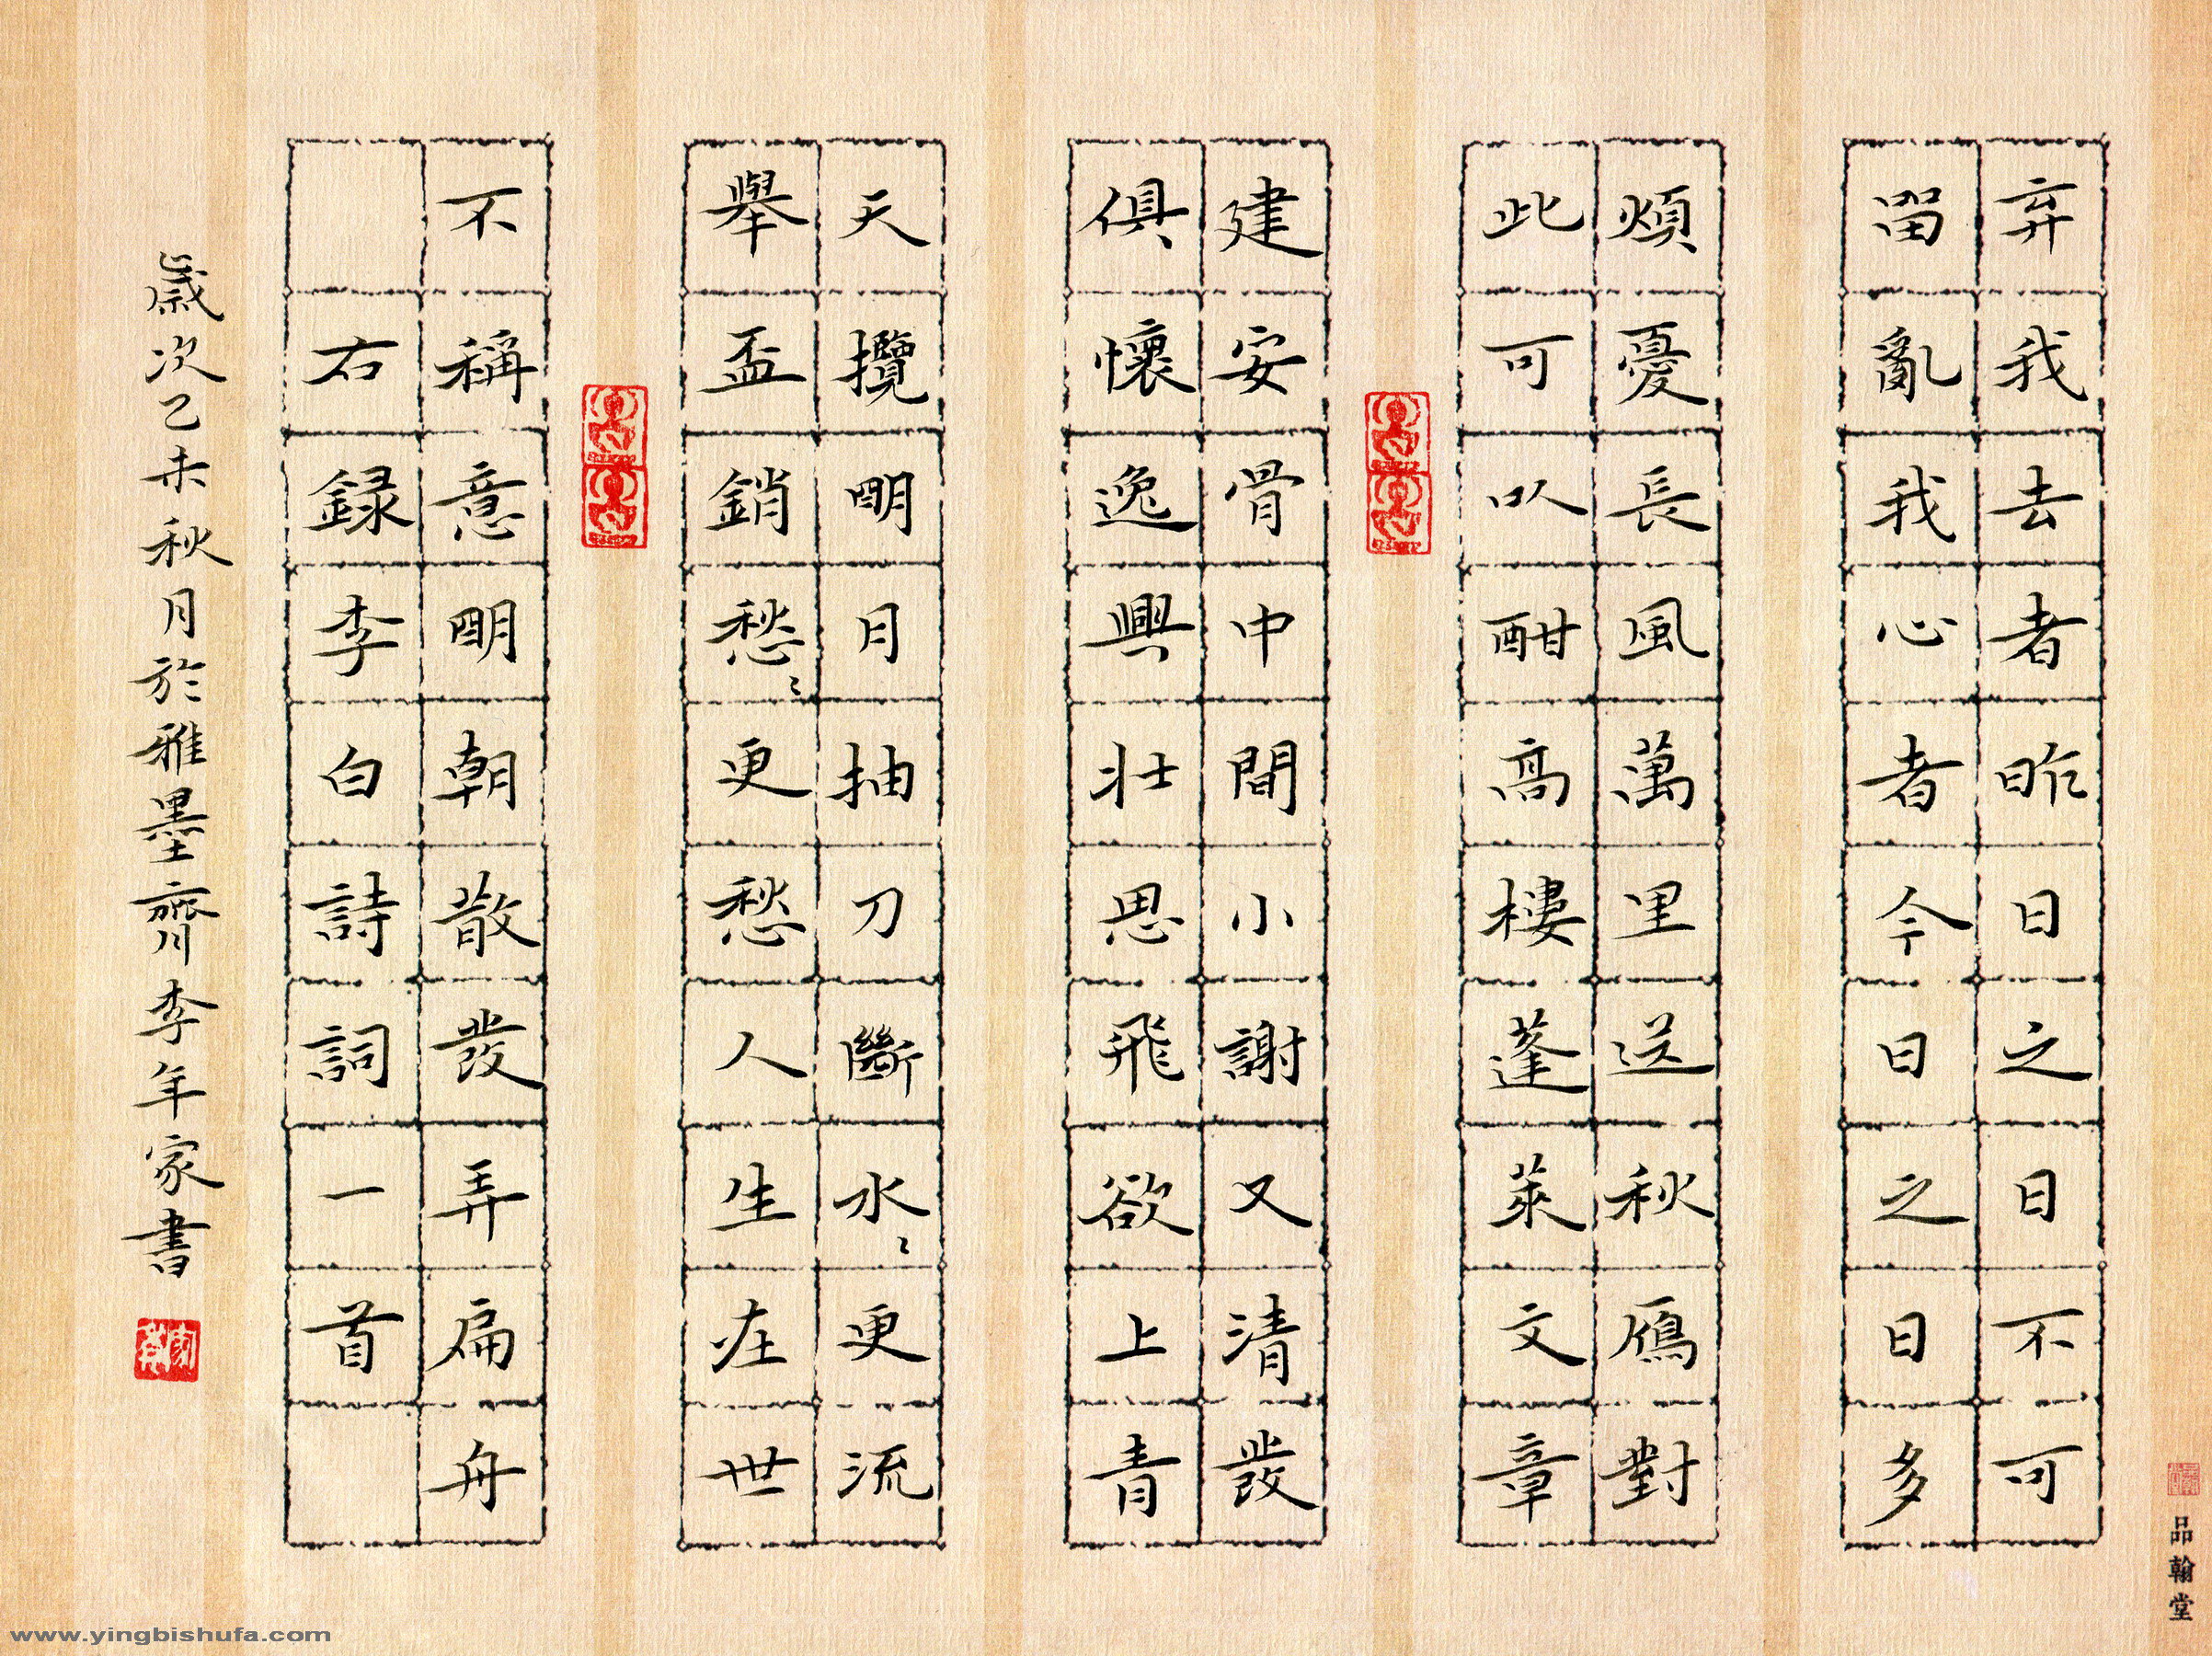 弃我去者昨日之日不可
畱亂我心者今日之日多
煩憂長風萬里送秋鴈對
此可以酣高樓蓬萊文章
建安骨中間小謝又清發
俱懷逸興壯思飛欲上青
天攬明月抽刀斷水〻更流
舉盃銷愁〻更愁人生在世
不稱意明朝散發弄扁舟
右録李白詩詞一首
歲次乙未秋月於雅墨齋李年家書
品翰堂
www.yingbishufa.com